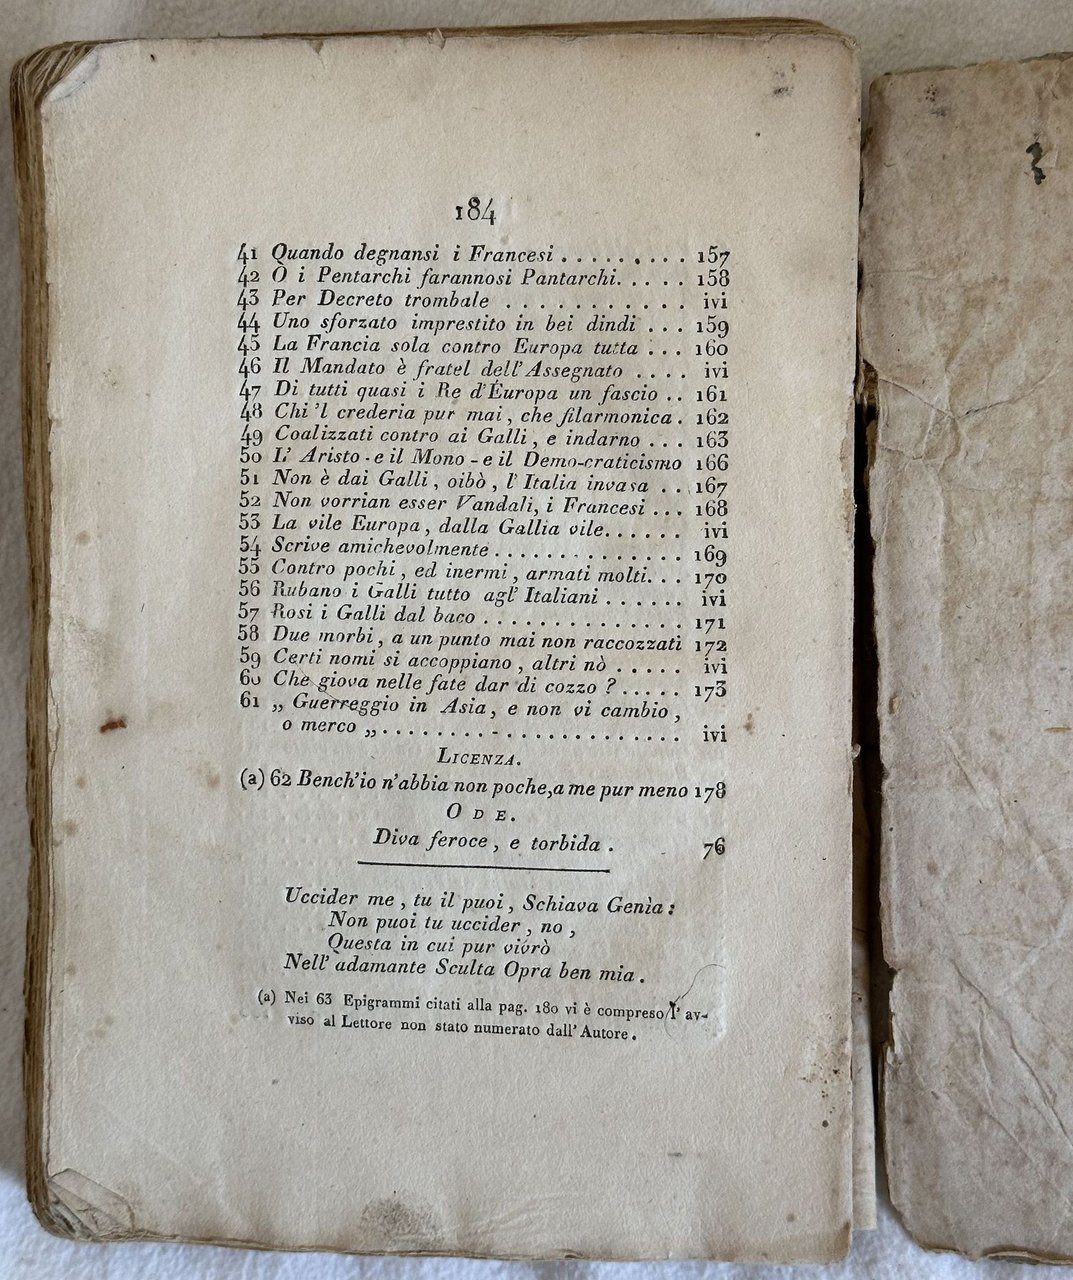 184
41 Quando degnansi i Francesi . . . . . . . . . 157
42 O i Pentarchi farannosi Pantarchi. . . . . 158
43 Per Decreto trombale . . . . . . . . . . . ivi
44 Uno sforzato imprestito in bei dindi . . . 159
45 La Francia sola contro Europa tutta . . . 160
46 Il Mandato è fratel dell'Assegnato . . . . ivi
47 Di tutti quasi i Re d'Europa un fascio . . 161
48 Chi 'l crederia pur mai, che filarmonica . 162
49 Coalizzati contro ai Galli, e indarno . . . 163
50 L' Aristo - e il Mono - e il Demo-craticismo 166
51 Non è dai Galli, oibò, l'Italia invasa . . . 167
52 Non vorrian esser Vandali, i Francesi . . . 168
53 La vile Europa, dalla Gallia vile. . . . . . ivi
54 Scrive amichevolmente . . . . . . . . . . . . 169
55 Contro pochi, ed inermi, armati molti. . . 170
56 Rubano i Galli tutto agl' Italiani . . . . . . ivi
57 Rosi i Galli dal baco . . . . . . . . . . . . . 171
58 Due morbi, a un punto mai non raccozzati 172
59 Certi nomi si accoppiano, altri nò . . . . . ivi
60 Che giova nelle fate dar di cozzo ? . . . . . 173
61 „ Guerreggio in Asia, e non vi cambio,
o merco „ . . . . . . . . . . . . . . . . . . . . . ivi
LICENZA.
(a) 62 Bench'io n'abbia non poche, a me pur meno 178
ODE.
Diva feroce, e torbida . 76
Uccider me, tu il puoi, Schiava Genìa:
Non puoi tu uccider, no,
Questa in cui pur vivrò
Nell' adamante Sculta Opra ben mia.
(a) Nei 63 Epigrammi citati alla pag. 180 vi è compreso l' av-
viso al Lettore non stato numerato dall' Autore.